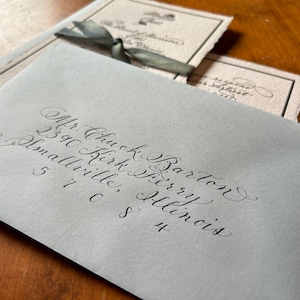 Mr. Chuck Barton
2390 Kirk Ferry
Smallville, Illinois
5 7 0 8 4